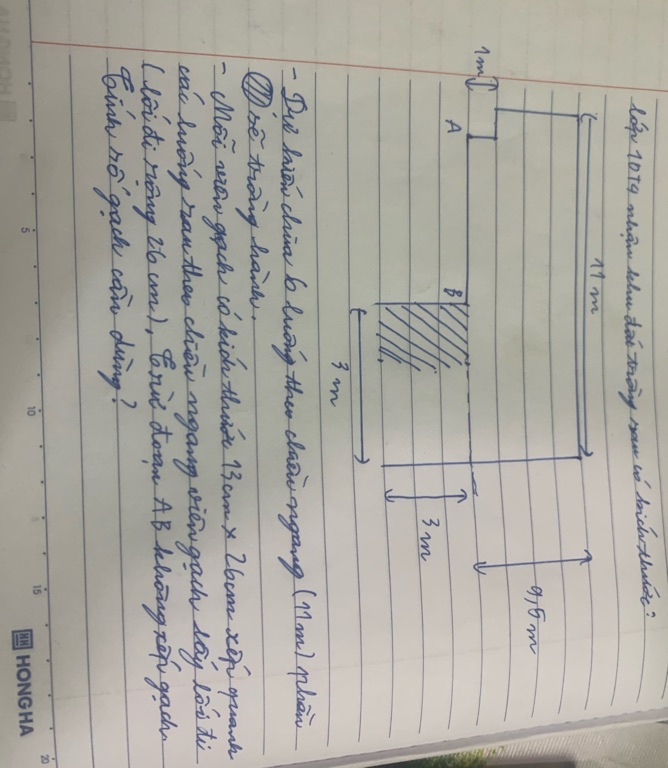 lớp 10T9 nhận khu đất trồng rau có kích thước:
11 m
1m
A
B
9,5 m
3 m
3 m
- Dự kiến chia 6 luống theo chiều ngang (11m) phần
sẽ trồng hành.
- Mỗi viên gạch có kích thước 13cm x 26cm xếp quanh
các luống rau theo chiều ngang viên gạch lấy lối đi
(lối đi rộng 26 cm), trừ đoạn AB không xếp gạch.
Tính số gạch cần dùng?
5
10
15
20
HONG HA